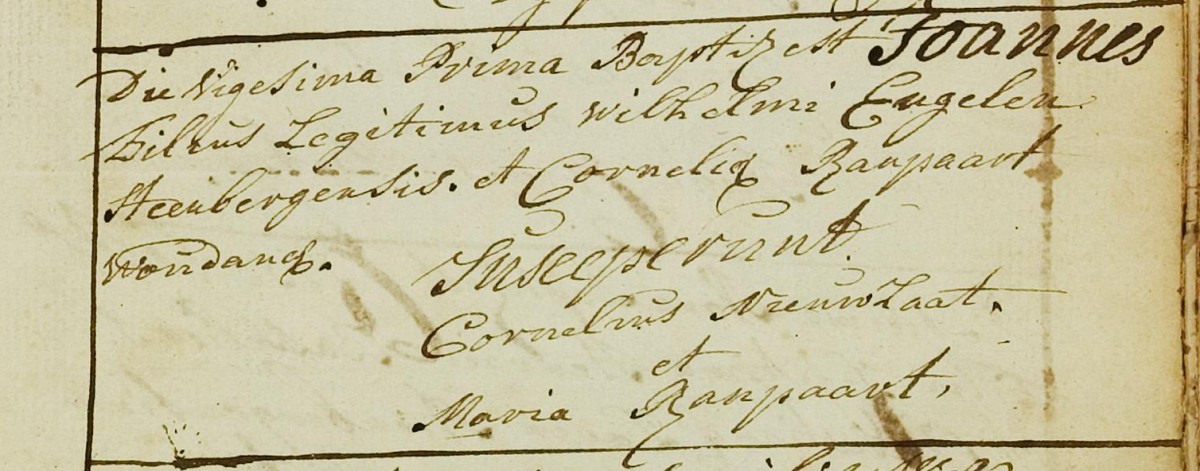 Die Vigesima Prima Baptiz est Joannes
Filius Legitimus Wilhelmi Engelen
Steenbergensis. et Corneliæ Ranpaart
Woudanæ. Susceperunt.
Cornelius Nieuwlaat.
et
Maria Ranpaart.